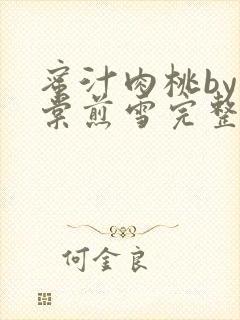 蜜汁肉桃by
棠煎雪完整
何金良